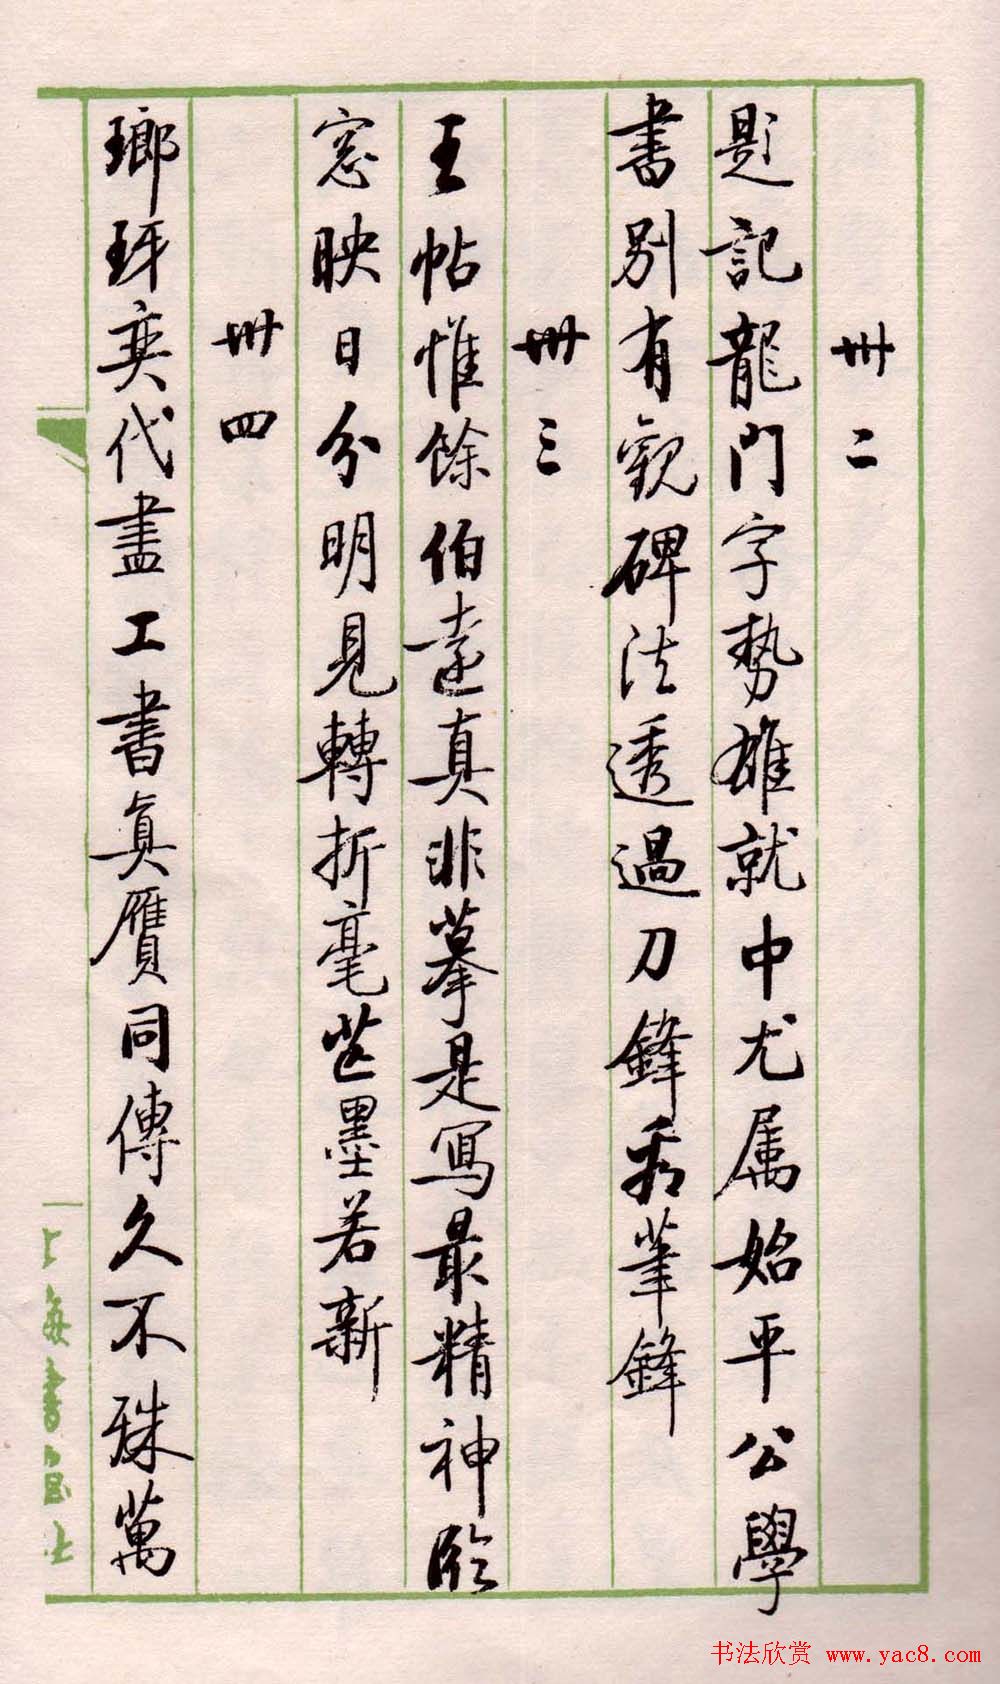 卅二
題記龍門字勢雄就中尤属始平公學
書別有觀碑法透過刀鋒看筆鋒
卅三
王帖惟餘伯遠真非摹是寫最精神臨
窓映日分明見轉折毫芒墨若新
卅四
瑯玡奕代盡工書真贋同傳久不殊萬
上海書画社
书法欣赏 www.yac8.com